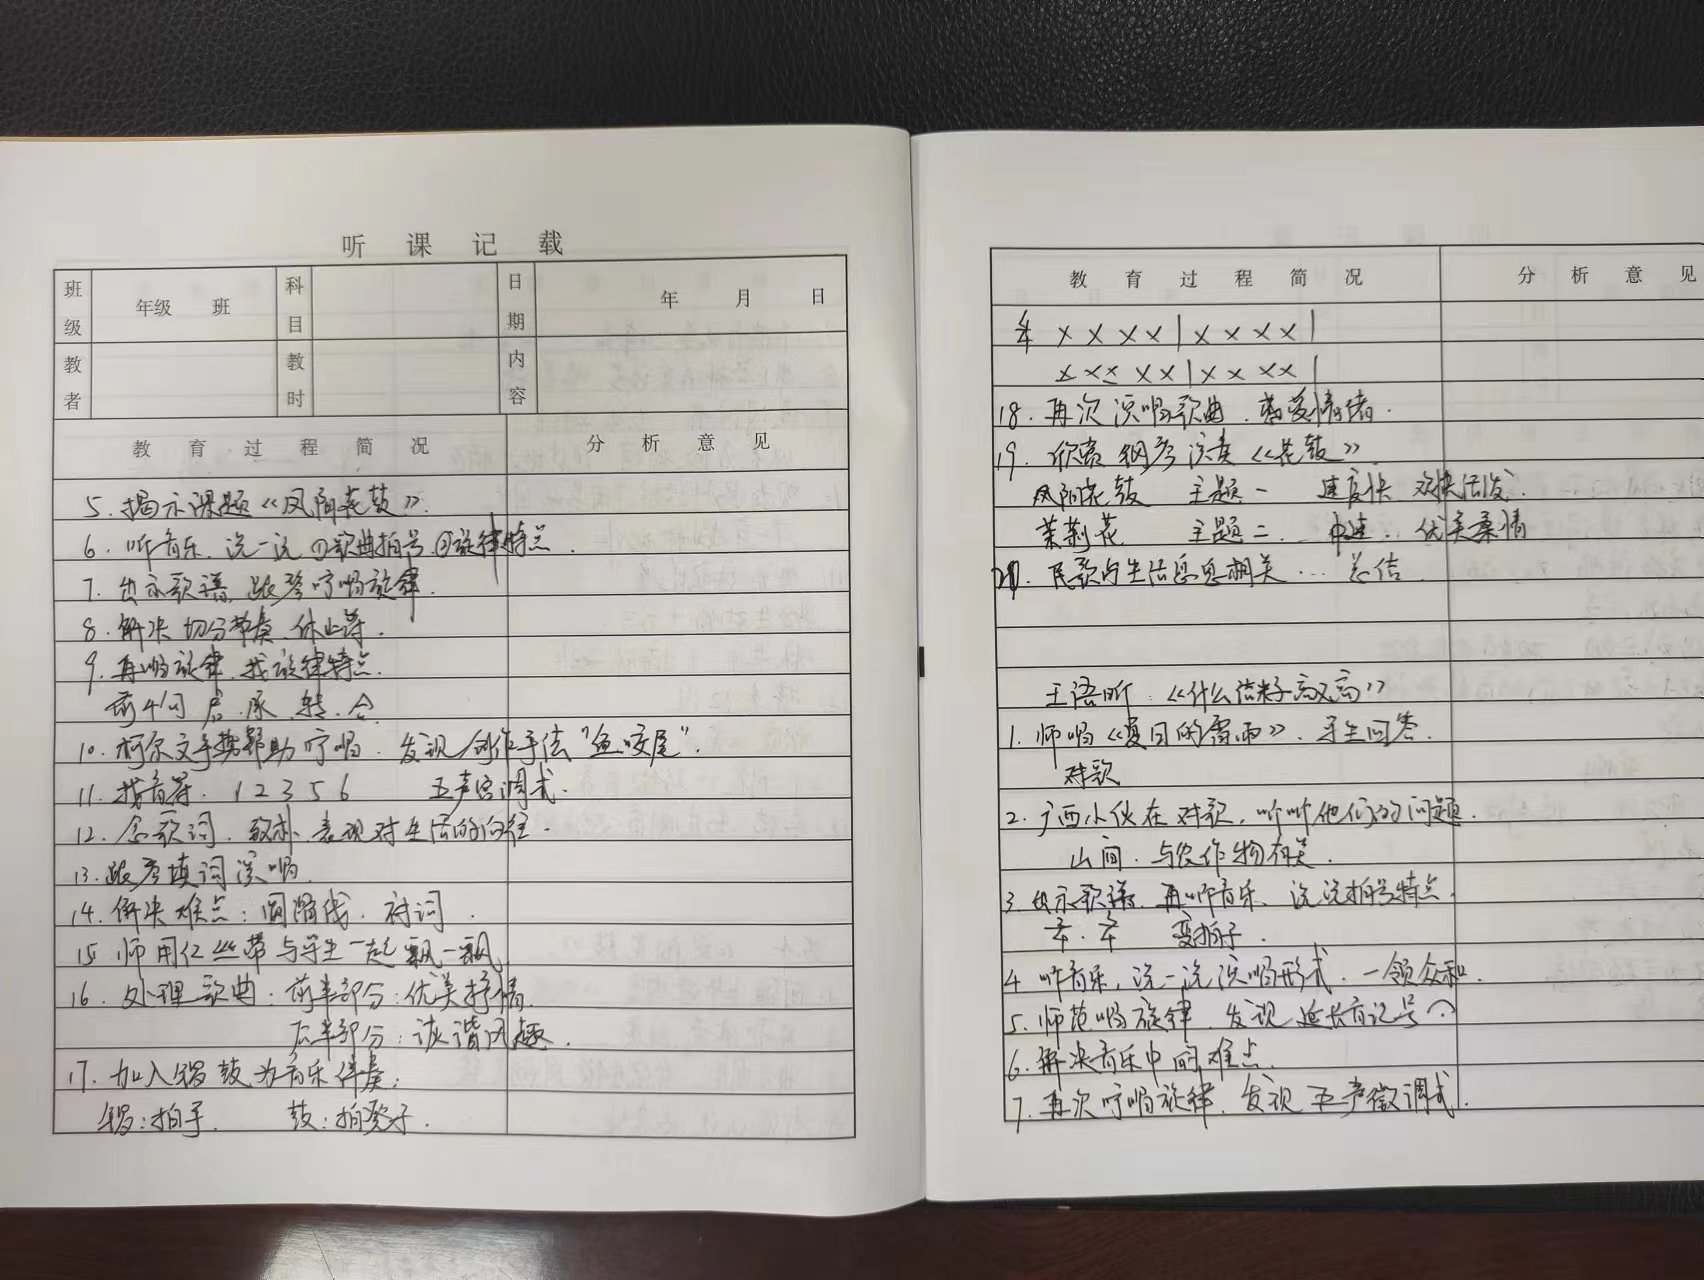 听 课 记 载
班级 年级 班 科目 日期 年 月 日
教者 教时 内容
教 育 过 程 简 况 分 析 意 见
5. 揭示课题《凤阳花鼓》.
6. 听音乐, 说一说 ①歌曲拍号 ②旋律特点.
7. 出示歌谱, 跟琴哼唱旋律.
8. 解决 切分节奏、休止符.
9. 再唱旋律, 找旋律特点.
前4句 启、承、转、合.
10. 柯尔文手势帮助哼唱. 发现创作手法"鱼咬尾".
11. 找音符. 1 2 3 5 6 五声宫调式.
12. 念歌词. 表现对生活的向往.
13. 跟琴填词演唱.
14. 解决难点: 圆滑线、衬词.
15. 师用红丝带与学生一起飘一飘.
16. 处理歌曲: 前半部分: 优美抒情.
后半部分: 诙谐风趣.
17. 加入锣鼓为音乐伴奏:
锣: 拍手. 鼓: 拍凳子.
教 育 过 程 简 况 分 析 意 见
X X X X | X X X X |
X XX X X | X X X X |
18. 再次演唱歌曲. 情绪.
19. 欣赏 钢琴演奏《花鼓》.
凤阳花鼓 主题一 速度快 欢快活泼.
茉莉花 主题二 中速 优美柔情
21. 民歌与生活息息相关... 总结.
王语昕:《什么结籽高又高》
1. 师唱《夏日的雷雨》. 学生回答.
对歌
2. 广西小伙在对歌, 听听他们的问题.
山间. 与农作物有关.
3. 出示歌谱. 再听音乐. 说说拍号特点.
变拍子.
4. 听音乐, 说一说演唱形式. 一领众和.
5. 师范唱旋律. 发现延长音记号
6. 解决音乐中的难点.
7. 再次哼唱旋律. 发现五声徵调式.